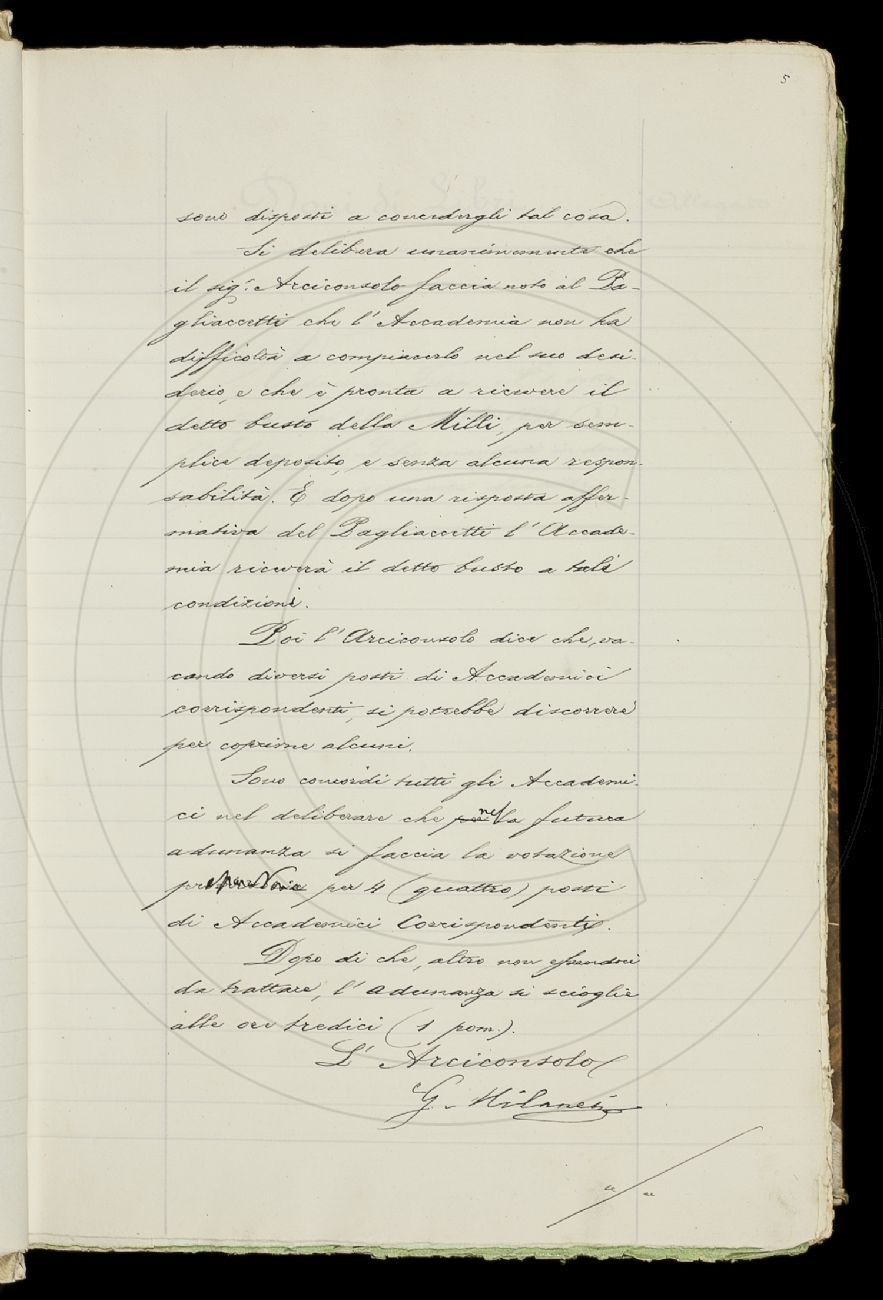 5
sono disposti a concedergli tal cosa.
Si delibera unanimemente che
il sig.r Arciconsolo faccia noto al Pa-
gliaccetti che l'Accademia non ha
difficoltà a compiacerlo nel suo desi-
derio, e che è pronta a ricevere il
detto busto della Milli, per sem-
plice deposito, e senza alcuna respon-
sabilità. E dopo una risposta affer-
mativa del Pagliaccetti l'Accade-
mia riceverà il detto busto a tali
condizioni.
Poi l'Arciconsolo dice che, va-
cando diversi posti di Accademici
corrispondenti, si potrebbe discorrere
per coprirne alcuni.
Sono concordi tutti gli Accademi-
ci nel deliberare che nella futura
adunanza si faccia la votazione
per 4 (quattro) posti
di Accademici Corrispondenti.
Dopo di che, altro non essendoci
da trattare, l'adunanza si scioglie
alle ore tredici (1 pom.).
L'Arciconsolo
G. Milanesi